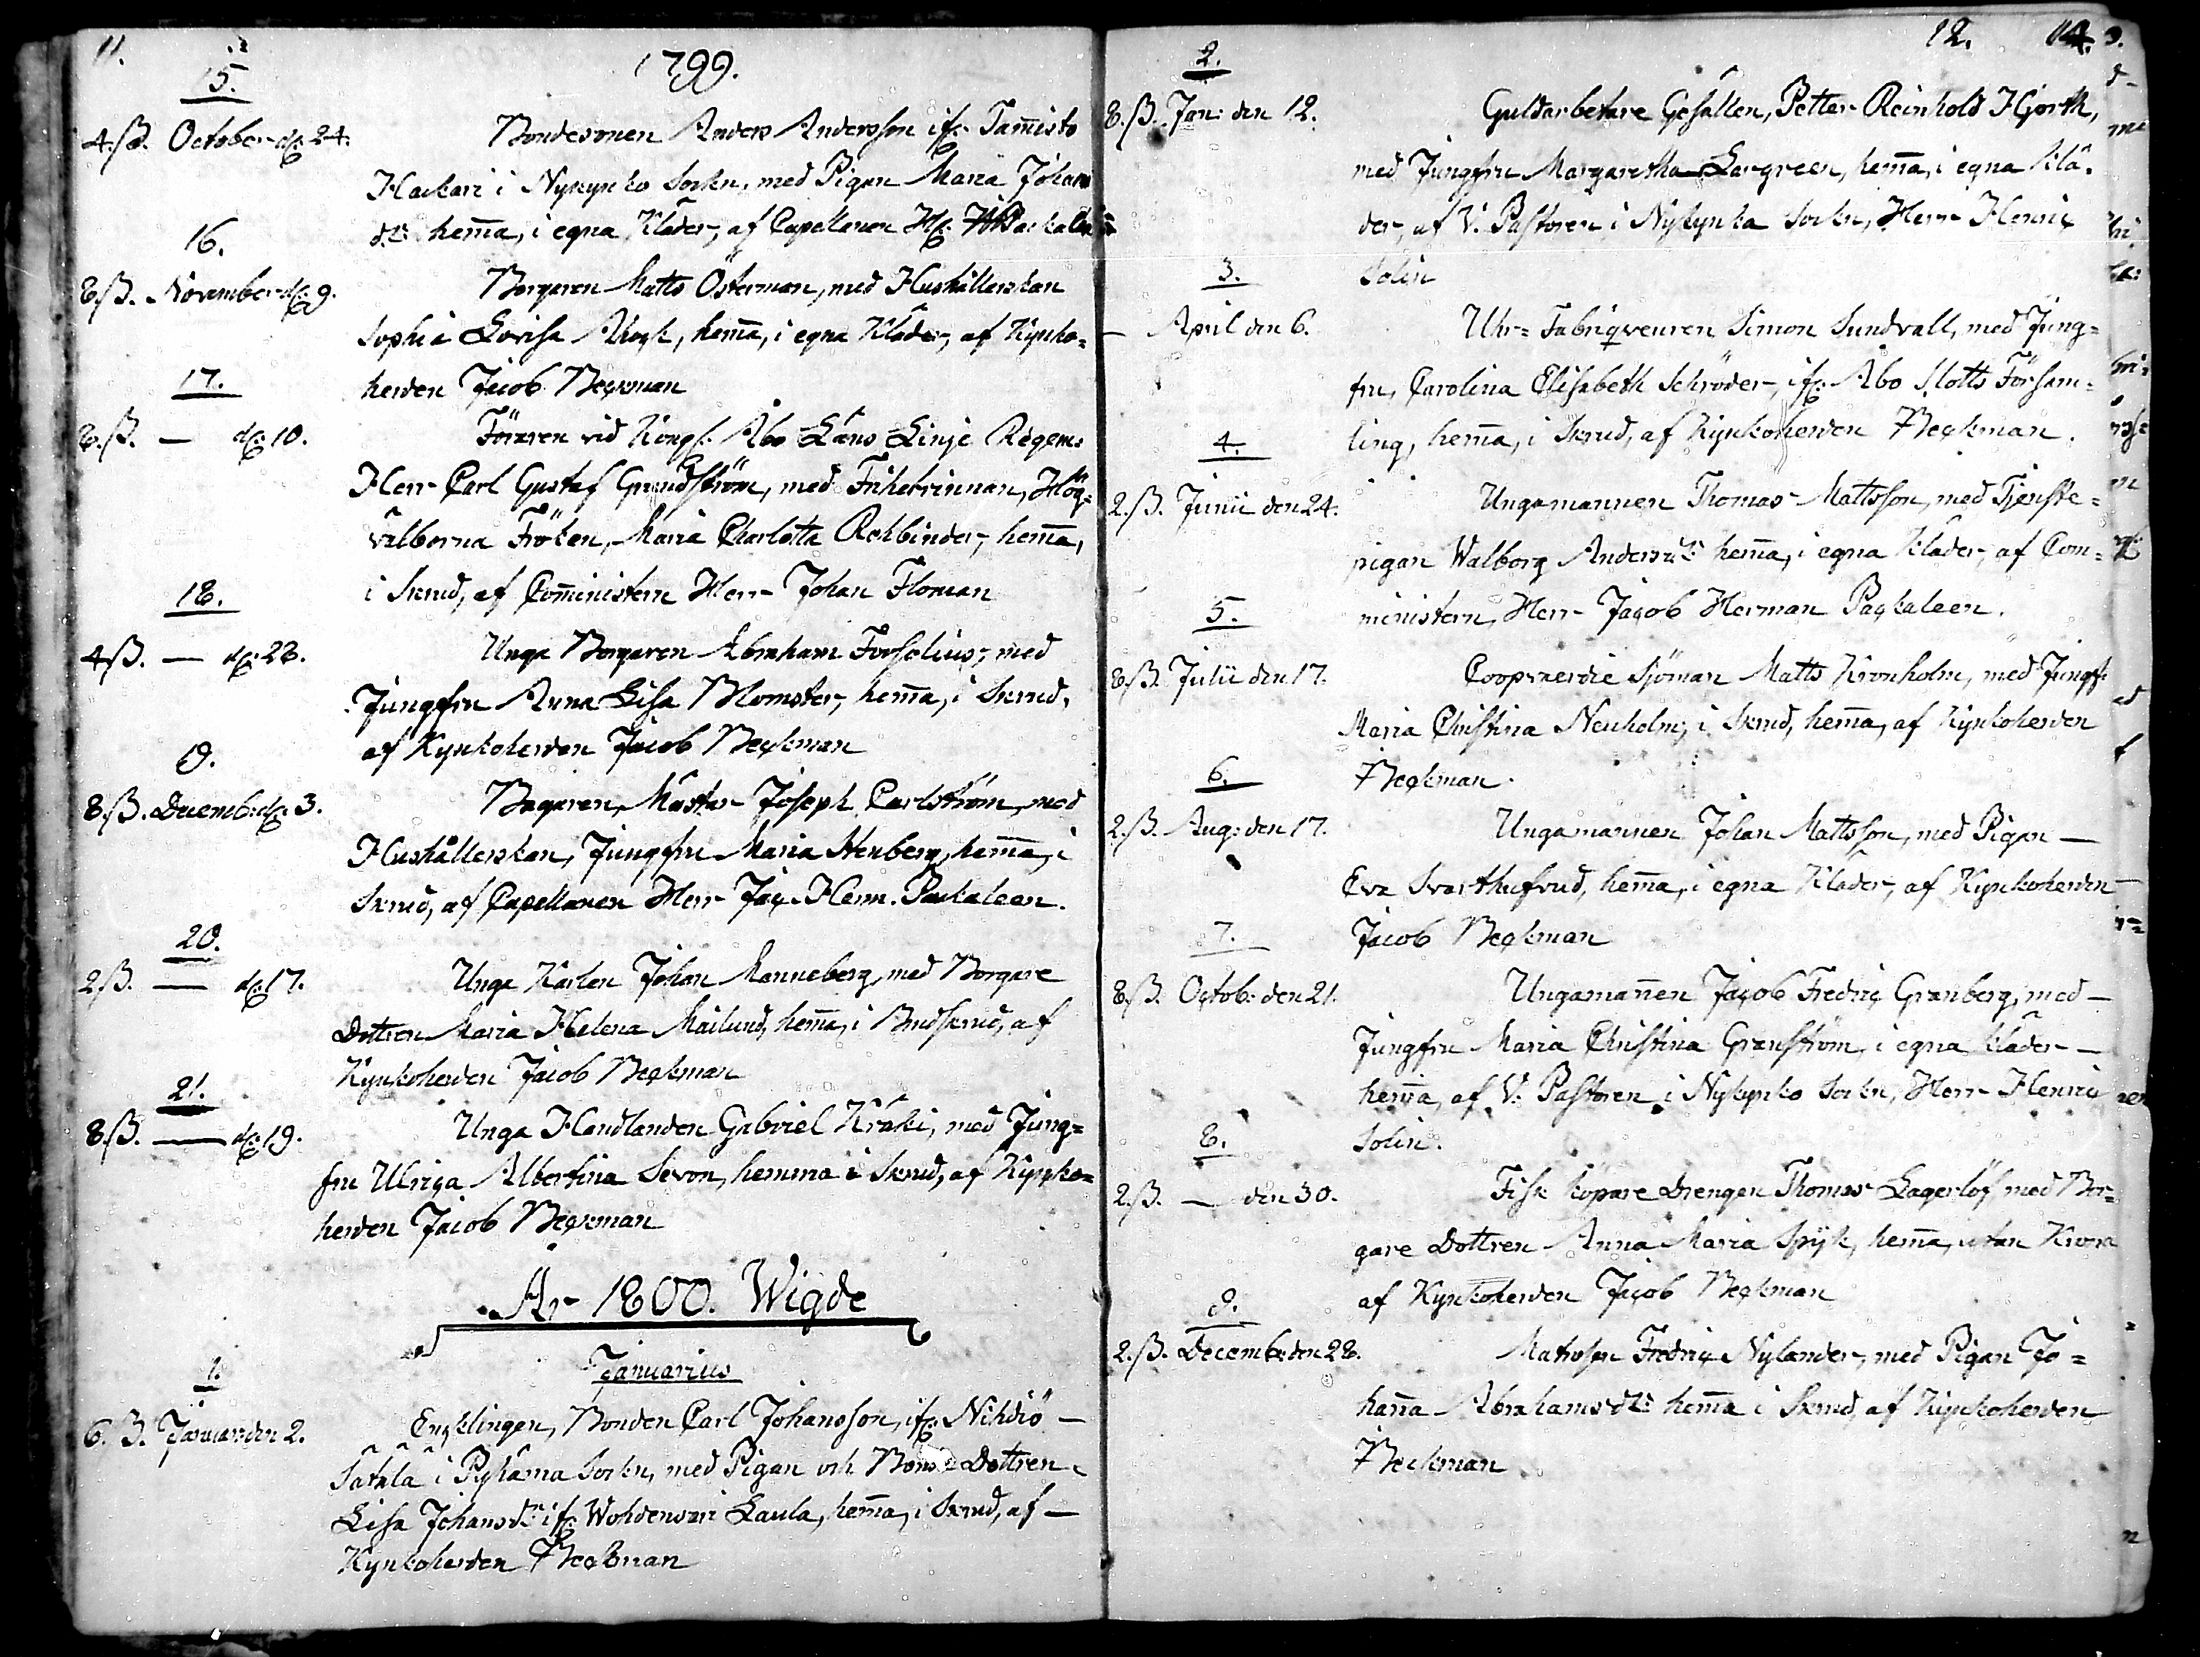 11.
1799.
15.
4.ß. October d: 24. Bondesonen Anders Andersson ifr: Tam̄isto
Hackari i Nykyrko Sockn, med Pigan Maria Johans
dtr hem̄a, i egna Kläder, af Capellanen
16.
8.ß. November d: 9. Borgaren Matts Österman, med Hushållerskan
Sophia Lovisa hem̄a, i egna Kläder, af Kyrko=
herden Jacob Beckman
17.
8.ß. — d: 10. Föraren vid Kongl: Åbo Läns Linje Regem:
Herr Carl Gustaf Grundström, med Friherrinnan, Hög=
välborna Fröken, Maria Charlotta Rehbinder, hem̄a,
i Skrud, af Com̄inistern Herr Johan Floman
18.
4ß. — d: 28. Unga Borgaren Abraham Forselius, med
Jungfru Anna Lisa Blomster, hem̄a, i Skrud,
af Kyrkoherden Jacob Beckman
19.
8.ß. Decemb: d: 3. Bagaren, Mäster Joseph Carlström, med
Hushållerskan, Jungfru Maria Stenberg, hem̄a, i
Skrud, af Capellanen Herr Jac. Herm. Packaleen.
20.
2ß. — d: 17. Unga Karlen Johan Manneberg, med Borgare
Dottren Maria Helena Mailund, hem̄a, i Brudskrud, af
Kyrkoherden Jacob Beckman
21.
8.ß. — d: 19. Unga Handlanden Gabriel Kräki, med Jung=
fru Ulrica Albertina Sevon, hemma i Skrud, af Kyrko=
herden Jacob Beckman
År 1800. Wigde
Januarius
1.
6.ß. Januar: den 2. Encklingen, Bonden Carl Johansson, ifr: Nihdiö —
Satala i Pyhäma Sockn, med Pigan och Bonde Dottren
Lisa Johansdr ifr: Wohdensari Laula, hem̄a, i Skrud, af —
Kyrkoherden Beckman
12. 14.
2.
8.ß. Jan: den 12. Guldarbetare Gesällen, Petter Reinhold Hjorth,
med Jungfru Margaretha Lergreen, hem̄a, i egna Klä=
der, af V. Pastoren i Nykyrka Sockn, Herr Henric
Solin
3.
— April den 6. Uhr=Fabriqveuren Simon Sundvall, med Jung=
fru, Carolina Elisabeth Schröder, ifr: Åbo Slotts Försam=
ling, hem̄a, i Skrud, af Kyrkoherden Beckman.
4.
2.ß. Junii den 24. Ungamannen Thomas Mattsson, med Tjenste=
pigan Walborg Andersdr hem̄a, i egna Kläder, af Com=
ministern, Herr Jacob Herman Packaleen.
5.
8.ß. Julii den 17. Coopvaerdie Sjöman Matts Kronholm, med Jungf:
Maria Christina Neuholm, i Skrud, hem̄a, af Kyrkoherden
Beckman.
6.
2.ß. Aug: den 17. Ungamannen Johan Mattsson, med Pigan —
Eva Svarthufvud, hem̄a, i egna Kläder, af Kyrkoherden
Jacob Beckman
7.
8.ß. Octob: den 21. Ungaman̄en Jacob Fredric Granberg, med —
Jungfru Maria Christina Granström, i egna kläder —
hem̄a, af V. Pastoren i Nykyrko Sockn, Herr Henric
Solin.
8.
2.ß. — den 30. Fisk köpare Drengen Thomas Lagerlöf med Bor=
gare Dottren Anna Maria Spijk, hem̄a, utan Krona
af Kyrkoherden Jacob Beckman
9.
2.ß. Decemb: den 28. Matrosen Fredric Nylander, med Pigan Jo=
han̄a Abrahamsdr: hem̄a i Skrud, af Kyrkoherden
Beckman